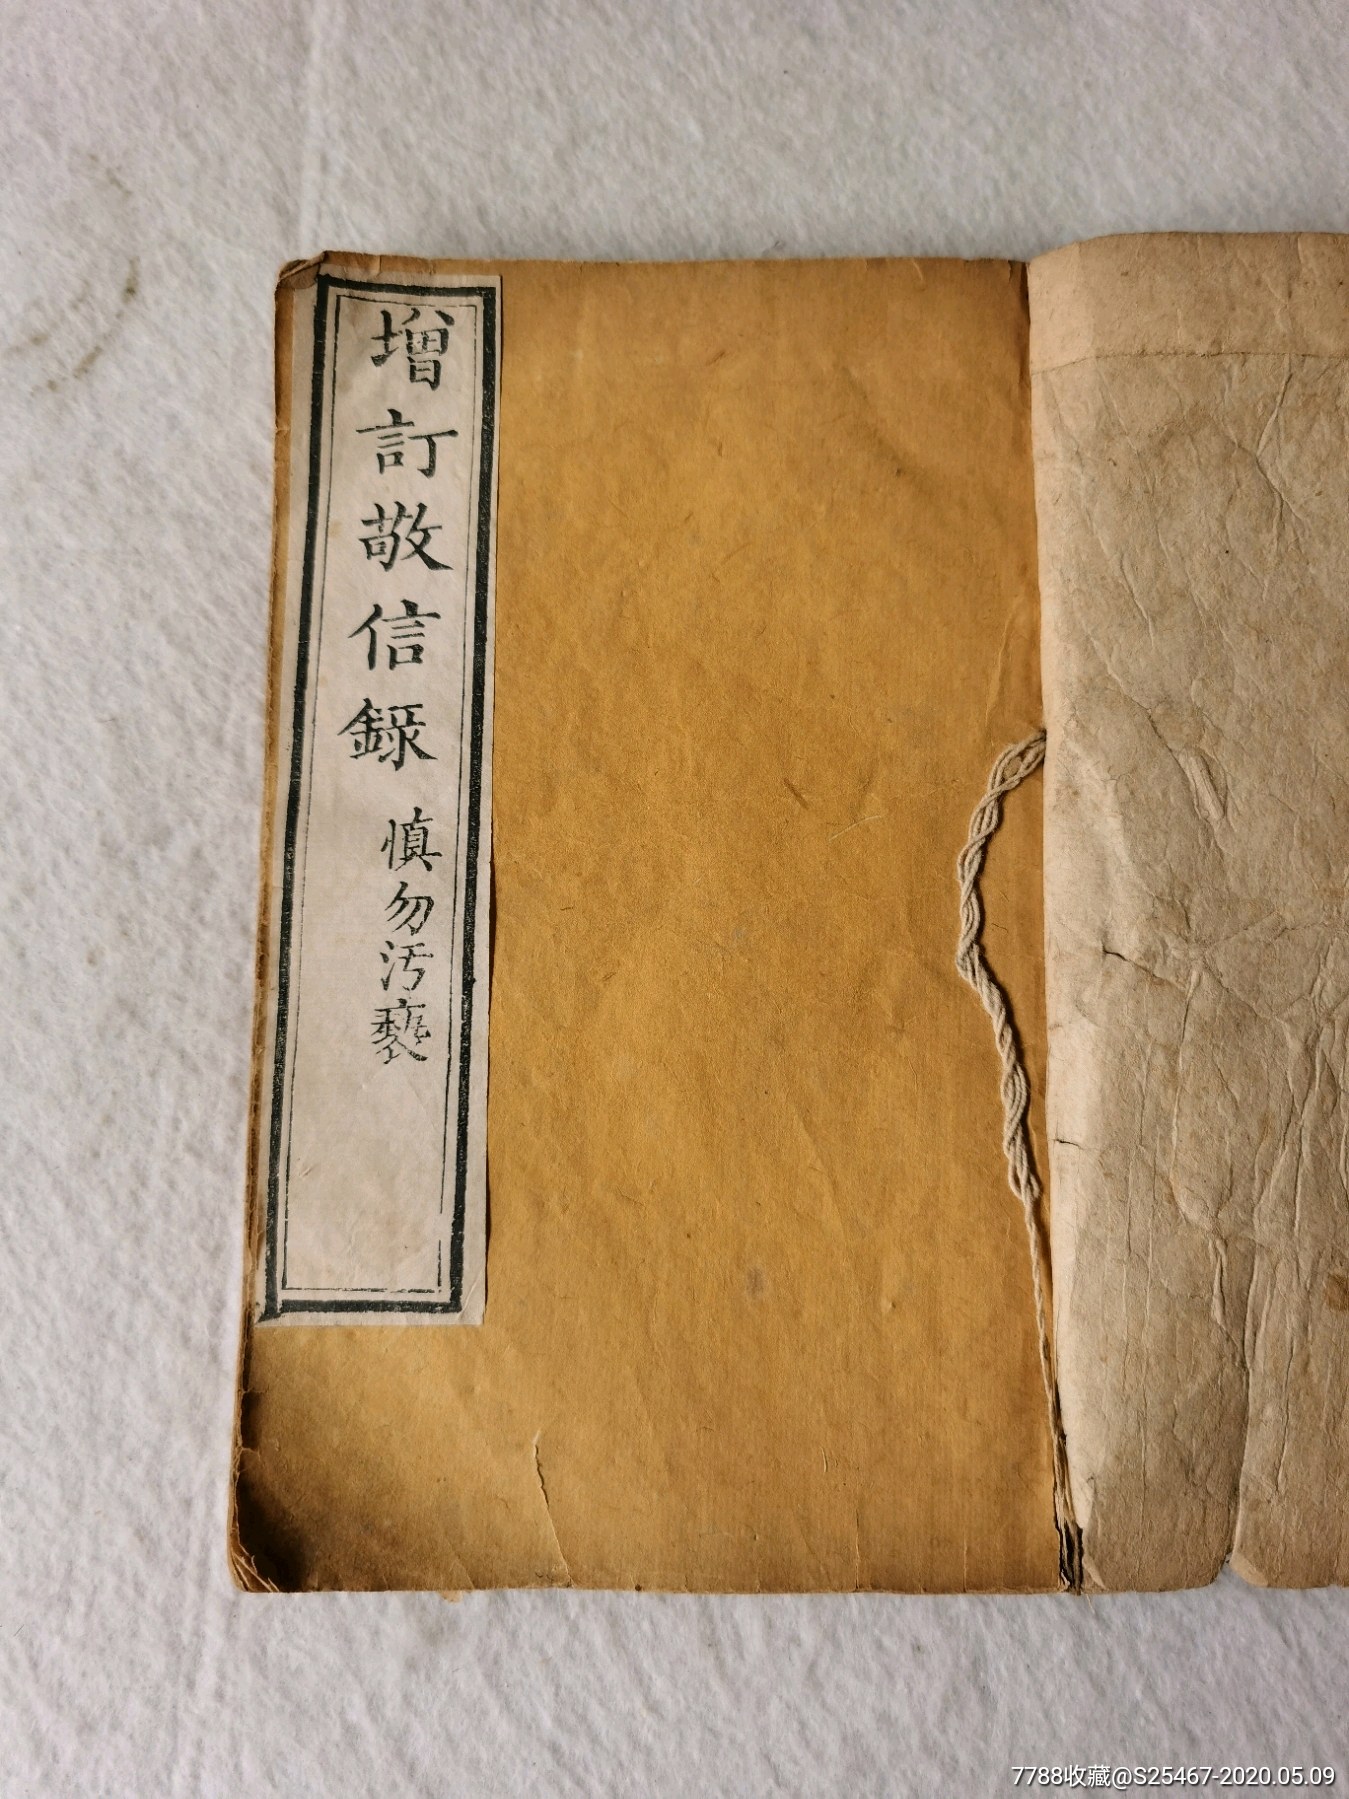 增訂敬信錄
慎勿汚褻
7788收藏@S25467-2020.05.09